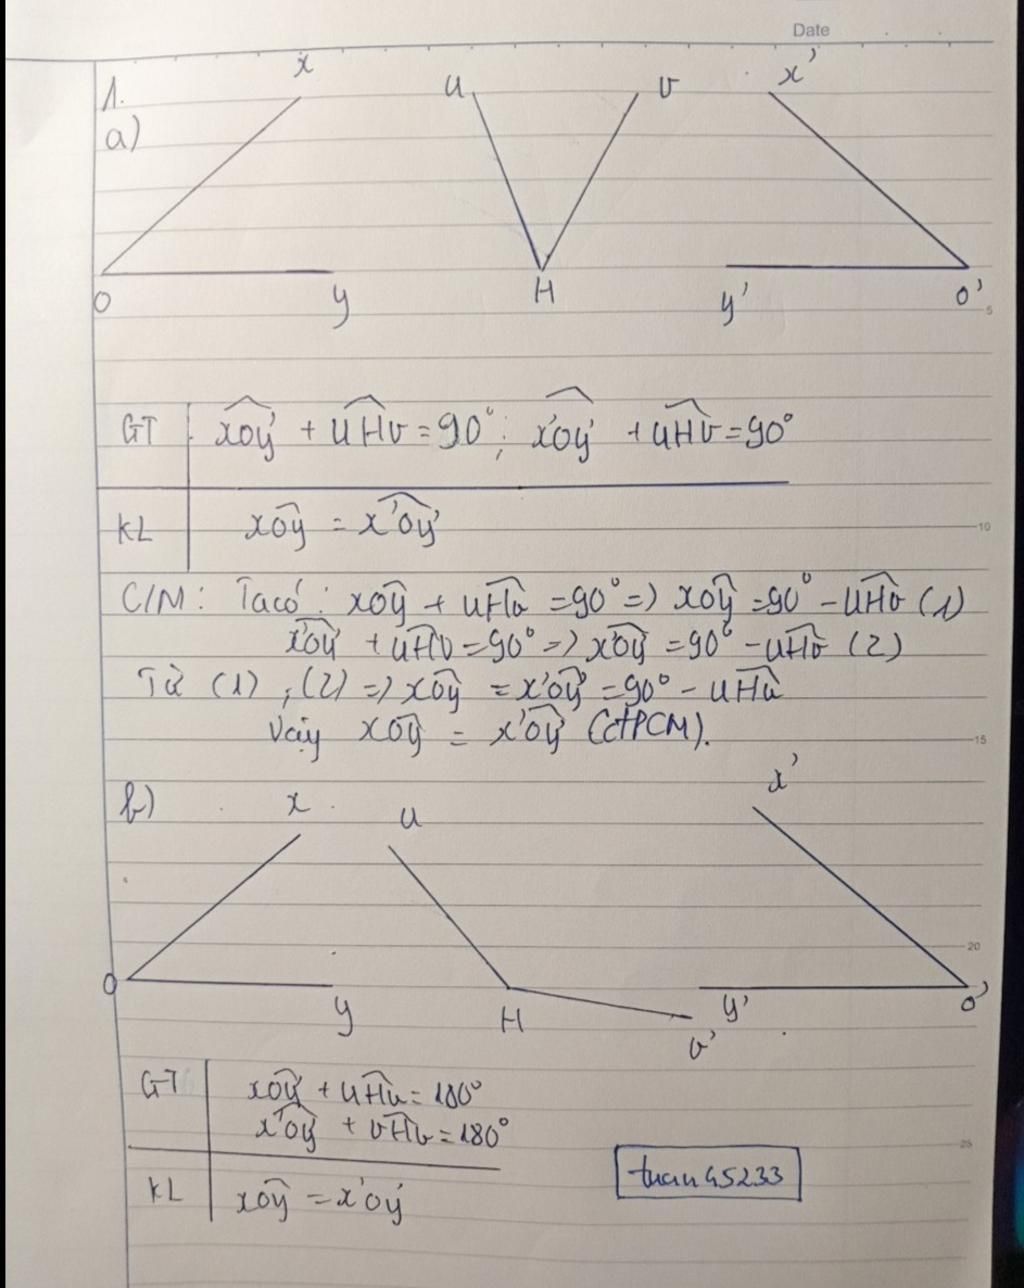 Date
x u v x'
1.
a)
O y H y' O'
5
GT xOy + uHv = 90°; x'Oy' + uHv = 90°
KL xOy = x'Oy'
10
C/M: Ta có: xOy + uHv = 90° => xOy = 90° - uHv (1)
x'Oy' + uHv = 90° => x'Oy' = 90° - uHv (2)
Từ (1), (2) => xOy = x'Oy' = 90° - uHv
Vậy xOy = x'Oy' (đPCM).
15
b) x u x'
20
O y H v' y' O'
GT xOy + uHv = 180°
x'Oy' + vHv = 180°
25
KL xOy = x'Oy'
tuan45233